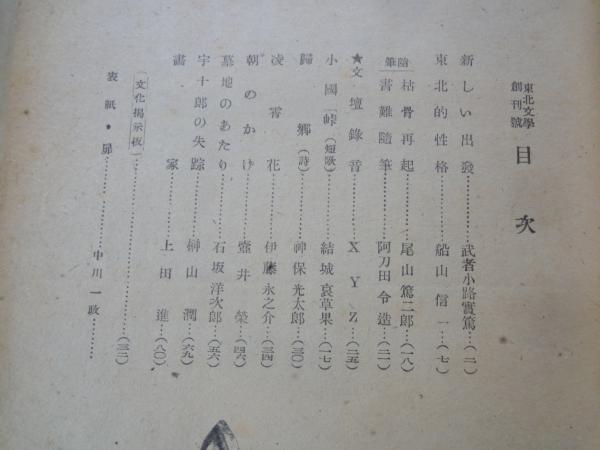 東北文學
創刊號
目次
新しい出發……………武者小路實篤…(二)
東北的性格……………船山信一…(七)
隨筆
枯骨再起……………尾山篤二郎…(一八)
書難隨筆……………阿刀田令造…(二一)
★文壇錄音……………XYZ…(二五)
小國「峠」(短歌)……………結城哀草果…(一七)
歸鄉(詩)……………神保光太郎…(三〇)
凌霄花……………伊藤永之介…(三四)
朝のかげ……………壺井榮…(四六)
墓地のあたり……………石坂洋次郎…(五六)
宇十郎の失踪……………榊山潤…(六九)
畵家……………上田進…(八〇)
(文化揭示板)……………(三二)
表紙・扉……………中川一政……